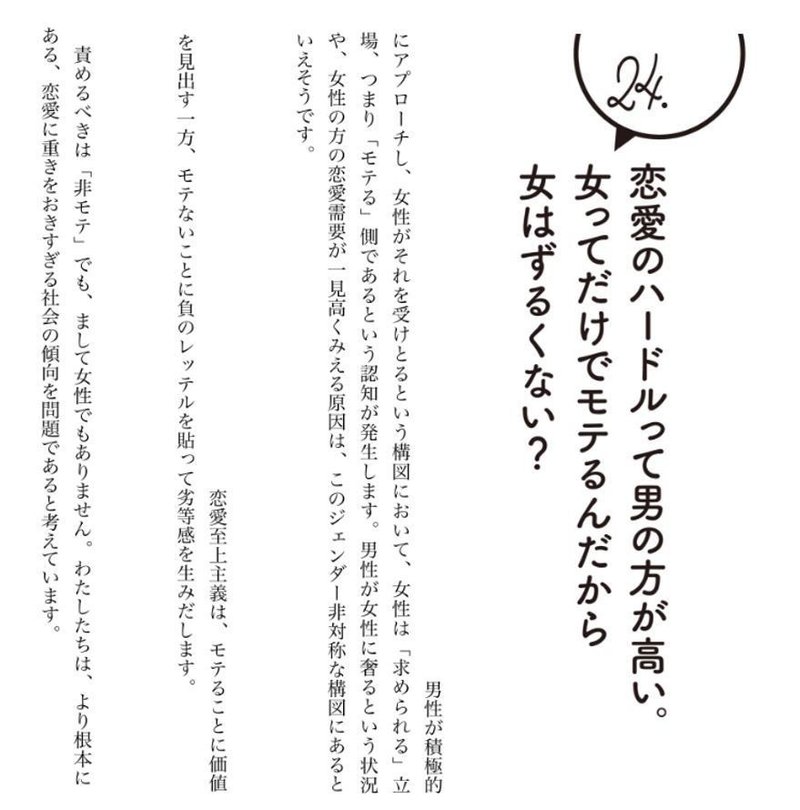 24.
恋愛のハードルって男の方が高い。
女ってだけでモテるんだから
女はずるくない?
男性が積極的
にアプローチし、女性がそれを受けとるという構図において、女性は「求められる」立
場、つまり「モテる」側であるという認知が発生します。男性が女性に奢るという状況
や、女性の方の恋愛需要が一見高くみえる原因は、このジェンダー非対称な構図にあると
いえそうです。
恋愛至上主義は、モテることに価値
を見出す一方、モテないことに負のレッテルを貼って劣等感を生みだします。
責めるべきは「非モテ」でも、まして女性でもありません。わたしたちは、より根本に
ある、恋愛に重きをおきすぎる社会の傾向を問題であると考えています。